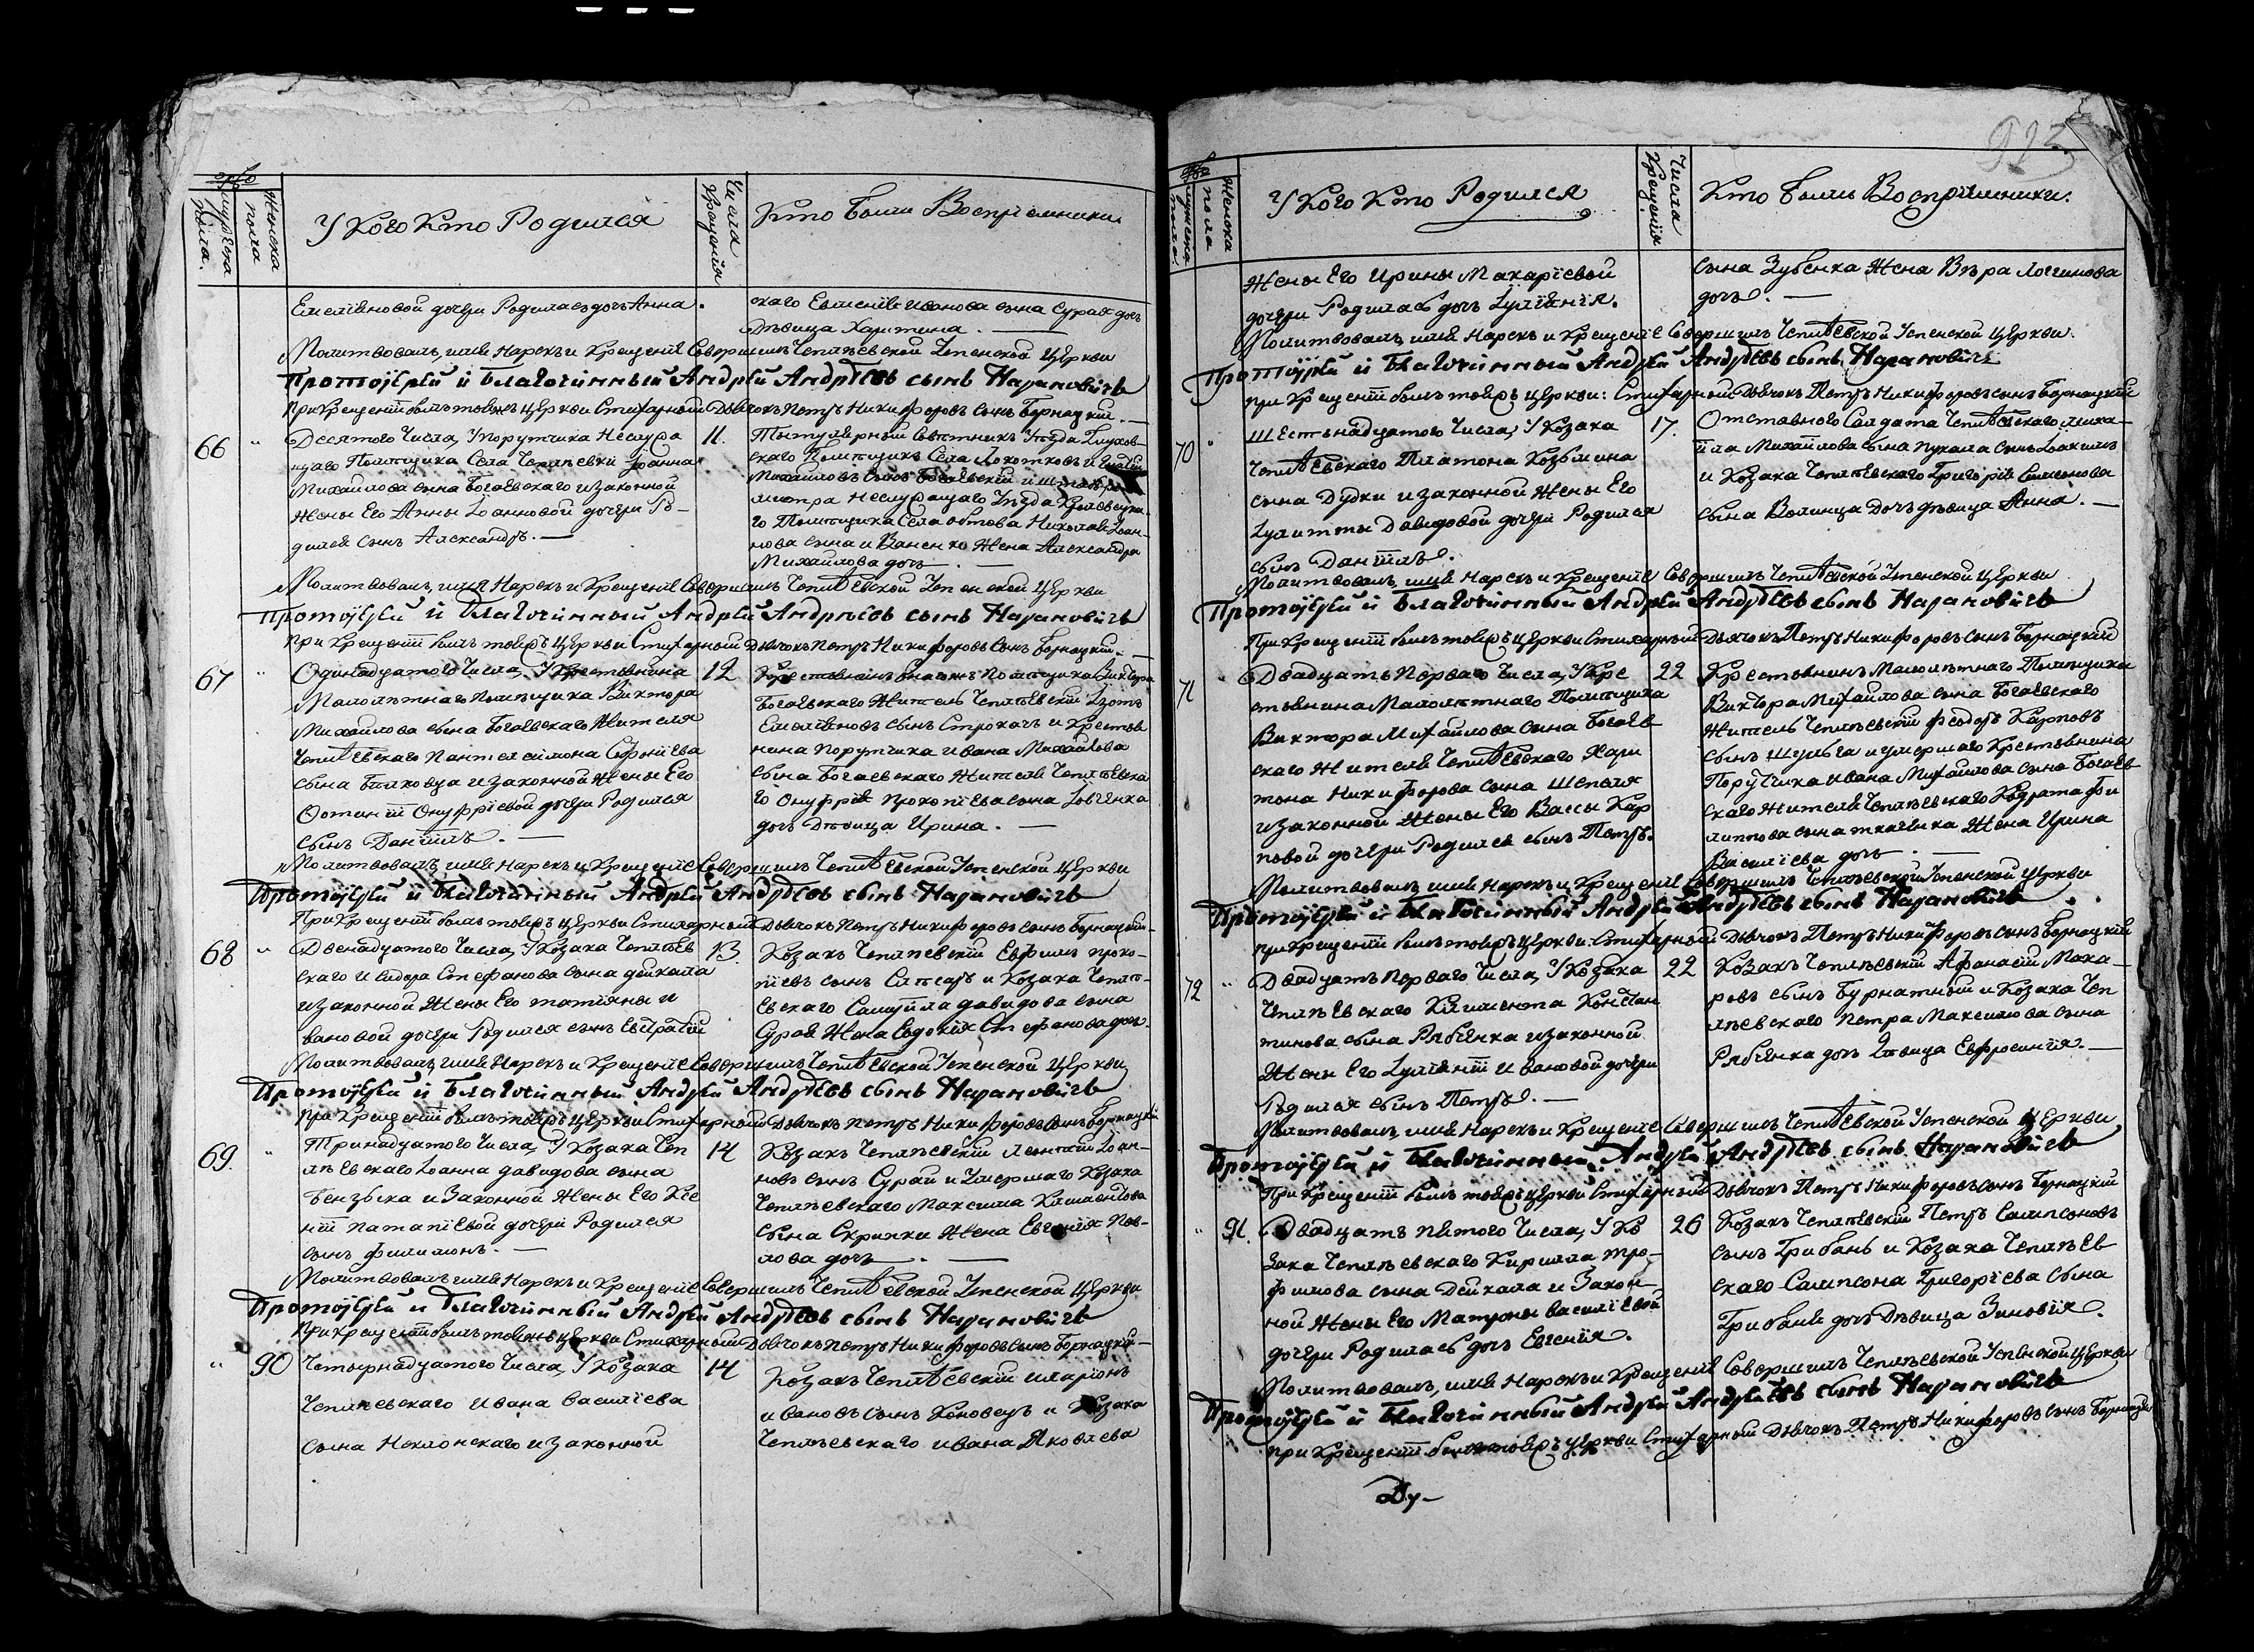 Мужеска пола.
Женска пола
У Кого Кто Родился
Числа Крещенія
Кто были Воспріемники
Емеліяновой дочери Родилась дочъ Анна.
скаго Евменія иванова сына Сурая дочъ
Дѣвица Харитина.
Молитвовалъ, имя Нарекъ и Крещеніе Совершилъ Чеплѣевской Успенской Церкви
Протоіерей и Благочинный Андрей Андрѣевъ сынъ Нарановичъ
при Крещеніи былъ тояжъ Церкви Стихарный Дьячокъ Петръ Никифоровъ сынъ Борнацкій.
66
Десятого Числа, У порутчика Неслужа
щаго Помѣщика Села Чеплѣевки Іоанна
Михайлова сына Богаевского и законной
Жены Его Анны Іоанновой дочери Ро-
дился сынъ Александръ.
11.
Тытулярный Совѣтникъ Уѣзда Глухов-
скаго Помѣщикъ Села Локотковъ
Михайловъ сынъ Богаевскій и
Неслужащаго Уѣзда Кролевецка-
го Помѣщика Села Николая Іоан-
нова сына Жена Александра
Михайлова дочъ.
Молитвовалъ, имя Нарекъ и Крещеніе Совершилъ Чеплѣевской Успенской Церкви
Протоіерей и Благочинный Андрей Андрѣевъ сынъ Нарановичъ
при Крещеніи былъ тояжъ Церкви Стихарный Дьячокъ Петръ Никифоровъ сынъ Борнацкій.
67
Одинадцатого Числа, У Крестьянина
Малолѣтнаго Помѣщика Виктора
Михайлова сына Богаевскаго Жителя
Чеплѣевскаго Пантелеймона Софоніева
сына Билковца и законной Жены Его
Фотиніи Онуфріевой дочери Родился
сынъ Даніилъ.
12
Крестьянинъ Помѣщика Виктора
Богаевскаго Житель Чеплѣевскій Ізотъ
Емеліяновъ сынъ Строкачъ и Крестья
нина порутчика Ивана Михайлова
сына Богаевского Жителя Чеплѣевска
го Онуфрія Прокопіева сына Іовченка
дочъ Дѣвица Ирина.
Молитвовалъ, имя Нарекъ и Крещеніе Совершилъ Чеплѣевской Успенской Церкви
Протоіерей и Благочинный Андрей Андрѣевъ сынъ Нарановичъ
При Крещеніи былъ тояжъ Церкви Стихарный Дьячокъ Петръ Никифоровъ сынъ Борнацкій.
68
Двенадцатого Числа, У Козака Чеплѣев
скаго Исидора Стефанова сына дейкала
и законной Жены Его татіяны И
вановой дочери Родился сынъ Евстратій
13
Козакъ Чеплѣевскій Евфимъ проко-
піевъ сынъ Слѣсарь и Козака Чеплѣ-
Евскаго Самуила давидова сына
Сурая Жена Евдокія Стефанова дочъ.
Молитвовалъ, имя Нарекъ и Крещеніе Совершилъ Чеплѣевской Успенской Церкви
Протоіерей и Благочинный Андрей Андрѣевъ сынъ Нарановичъ
при Крещеніи былъ тояжъ Церкви Стихарный Дьячокъ Петръ Никифоровъ сынъ Борнацкій
69.
Тринадцатого Числа, У Козака Чеп
лѣевскаго Іоанна давидова сына
и Законной Жены Его Ксе
ніи патапіевой дочери Родился
сынъ филимонъ.
14
Козакъ Чеплѣевскій Леонтій Іоан-
новъ сынъ Сурай и Умершаго Козака
Чеплѣевскаго Максима Климентова
сына Скрипки Жена Евгенія Пав-
лова дочъ.
Молитвовалъ имя Нарекъ и Крещеніе Совершилъ Чеплѣевской Успенской Церкви
Протоіерей и Благочинный Андрей Андрѣевъ сынъ Нарановичъ
При Крещеніи былъ тояжъ Церкви Стихарный Дьячокъ Петръ Никифоровъ сынъ Борнацкій
90
Четырнадцатого Числа, У Козака
Чеплѣевскаго Ивана Василіева
сына Неклонскаго и законной
14
Козакъ Чеплѣевскій иларіонъ
ивановъ сынъ Коновецъ и Козака
Чеплѣевскаго ивана Яковлева
Мужеска пола.
Женска пола
У Кого Кто Родился
Числа Крещенія
Кто были Воспріемники.
Жены Его Ирины Макаріевой
дочери Родилась дочъ Іуліянія.
сына Зубенка Жена Вѣра Логинова
дочъ.
Молитвовалъ, имя Нарекъ и Крещеніе Совершилъ Чеплѣевской Успенской Церкви.
Протоіерей и Благочинный Андрей Андрѣевъ сынъ Нарановичъ
при Крещеніи былъ тояжъ Церкви: Стихарный Дьячокъ Петръ Никифоровъ сынъ Борнацкій
70
Шестьнадцатого Числа, У Козака
Чеплѣевскаго Платона Козьмина
сына Дудки и законной Жены Его
Іулитты Давидовой дочери Родился
сынъ Даніилъ.
17.
Отставного Салдата Чеплѣевскаго миха-
ила Михайлова сына пухала сынъ Іоакимъ
и Козака Чеплѣевскаго Григорія Симеонова
сына Волинца дочъ дѣвица Анна.
Молитвовалъ, имя Нарекъ и Крещеніе Совершилъ Чеплѣевской Успенской Церкви
Протоіерей и Благочинный Андрей Андрѣевъ сынъ Нарановичъ
При Крещеніи былъ тояжъ Церкви Стихарный Дьячокъ Петръ Никифоровъ сынъ Борнацкій
71
Двадцать Первого Числа, У Кре
стьянина Малолѣтнаго Помѣщика
Виктора Михайлова сына Богаев
скаго Жителя Чеплѣевскаго Хари
тона Никифорова сына Шепеля
и законной Жены Его Вассы Кар
повой дочери Родился сынъ Петръ.
22
Крестьянинъ Малолѣтнаго Помѣщика
Виктора Михайлова сына Богаевскаго
Житель Чеплѣевскій феодоръ Карповъ
сынъ Шульга и умершаго Крестьянина
Порутчика Ивана Михайлова сына Богаев
скаго Жителя Чеплѣевскаго Кодрата фи
липпова сына ткаченка Жена Ирина
Василіева дочъ.
Молитвовалъ, имя Нарекъ и Крещеніе Совершилъ Чеплѣевской Успенской Церкви
Протоіерей и Благочинный Андрей Андрѣевъ сынъ Нарановичъ
при Крещеніи былъ тояжъ Церкви Стихарный Дьячокъ Петръ Никифоровъ сынъ Борнацкій
72
Двадцать Первого Числа, У Козака
Чеплѣевскаго Климента Констан
тинова сына Рябченка и законной
Жены Его Іуліяніи Ивановой дочери
Родился сынъ Петръ.
22
Козакъ Чеплѣевскій Афанасій Мака-
ровъ сынъ Бурнатный и Козака Чеп
лѣевскаго Петра Максимова сына
Рябченка дочъ Дѣвица Евфросинія.
Молитвовалъ, имя Нарекъ и Крещеніе Совершилъ Чеплѣевской Успенской Церкви
Протоіерей и Благочинный Андрей Андрѣевъ сынъ Нарановичъ
При Крещеніи былъ тояжъ Церкви Стихарный Дьячокъ Петръ Никифоровъ сынъ Борнацкій
91.
Двадцать пятого Числа, У Ко
зака Чеплѣевскаго Кирилла тро-
фимова сына Дейкала и Закон-
ной Жены Его Матроны Василіевой
дочери Родилась дочъ Евгенія.
26
Козакъ Чеплѣевскій Петръ Сампсоновъ
сынъ Грибань и Козака Чеплѣев
скаго Сампсона Григоріева сына
Грибаня дочъ Дѣвица Зиновія.
Молитвовалъ, имя Нарекъ и Крещеніе Совершилъ Чеплѣевской Успенской Церкви
Протоіерей и Благочинный Андрей Андрѣевъ сынъ Нарановичъ
при Крещеніи былъ тояжъ Церкви Стихарный Дьячокъ Петръ Никифоровъ сынъ Борнацкій
Ду-